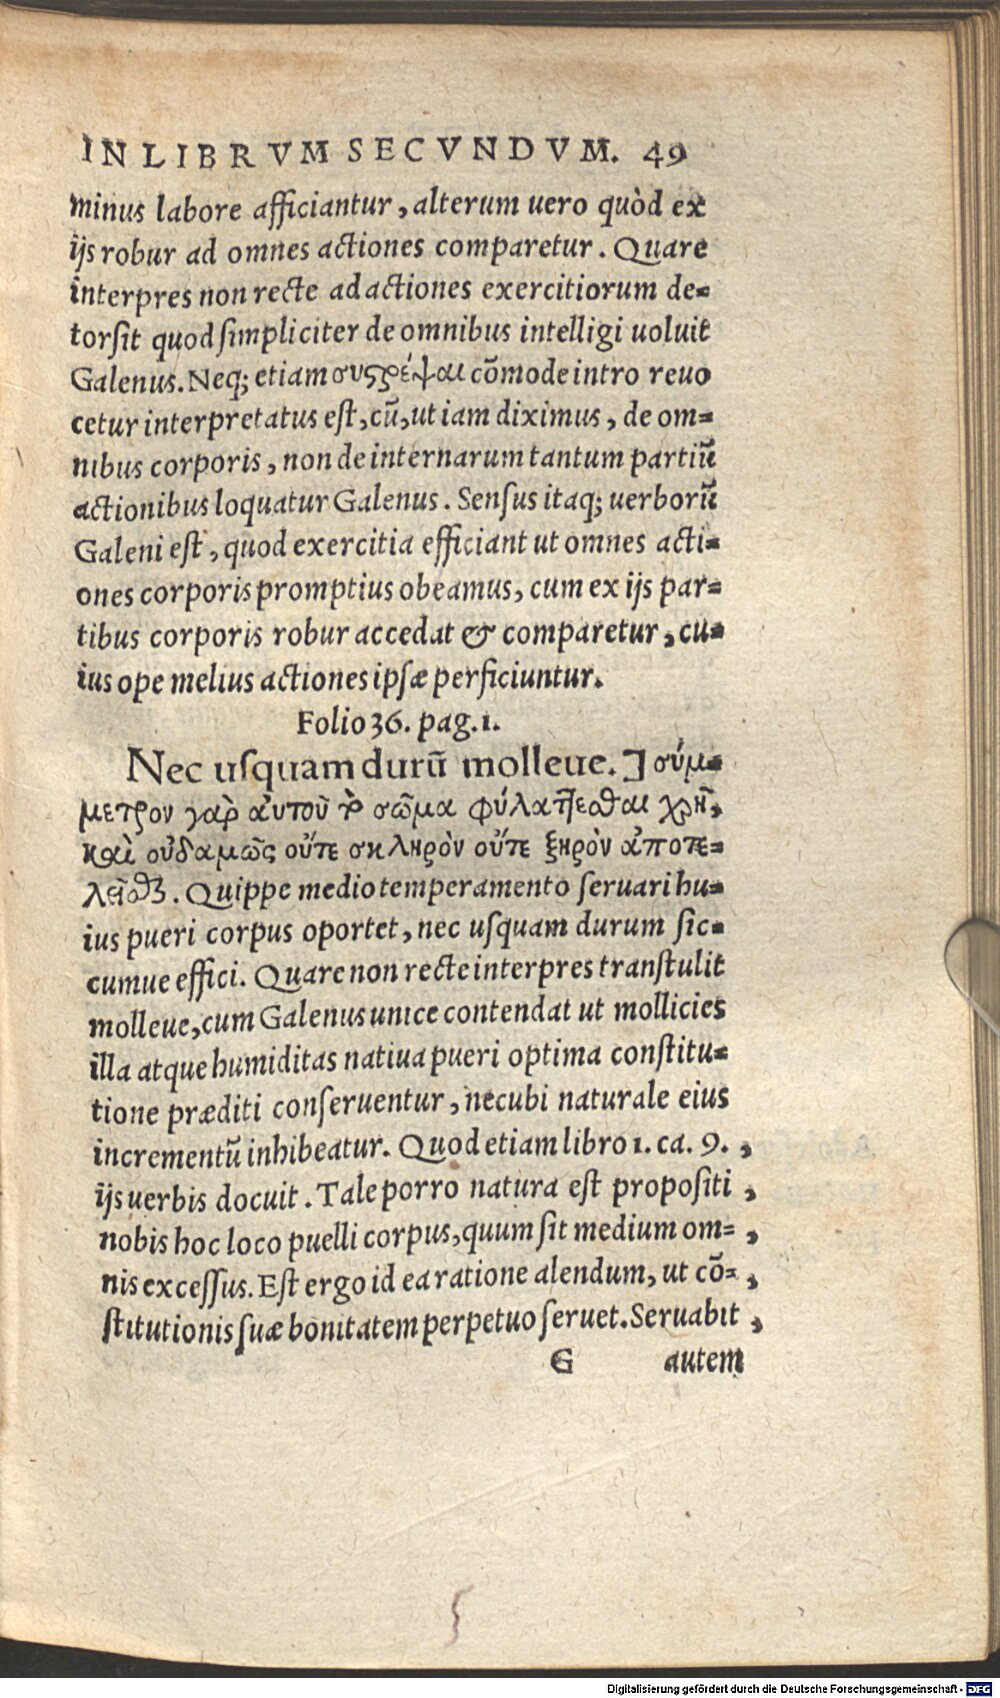 IN LIBRVM SECVNDVM. 49
minus labore afficiantur, alterum uero quòd ex
ijs robur ad omnes actiones comparetur. Quare
interpres non recte ad actiones exercitiorum de=
torsit quod simpliciter de omnibus intelligi uoluit
Galenus. Neq; etiam συςρέψαι cōmode intro reuo
cetur interpretatus est, cū, ut iam diximus, de om=
nibus corporis, non de internarum tantum partiū
actionibus loquatur Galenus. Sensus itaq; uerborū
Galeni est, quod exercitia efficiant ut omnes acti=
ones corporis promptius obeamus, cum ex ijs par=
tibus corporis robur accedat & comparetur, cu=
ius ope melius actiones ipsæ perficiuntur.
Folio 36. pag. 1.
Nec usquam durū molleue.] σύμ=
μετρον γὰρ αὐτοῦ τὸ σῶμα φύλαττεσθαι χρὴ,
καὶ οὐδαμῶς οὔτε σκληρὸν οὔτε ξηρὸν ἀποτε=
λεῖσθαι. Quippe medio temperamento seruari hu=
ius pueri corpus oportet, nec usquam durum sic=
cumue effici. Quare non recte interpres transtulit
molleue, cum Galenus unice contendat ut mollicies
illa atque humiditas natiua pueri optima constitu=
tione præditi conseruentur, necubi naturale eius
incrementū inhibeatur. Quod etiam libro 1. ca. 9. ,
ijs uerbis docuit. Tale porro natura est propositi ,
nobis hoc loco puelli corpus, quum sit medium om= ,
nis excessus. Est ergo id ea ratione alendum, ut cō= ,
stitutionis suæ bonitatem perpetuo seruet. Seruabit ,
G autem
Digitalisierung gefördert durch die Deutsche Forschungsgemeinschaft - DFG